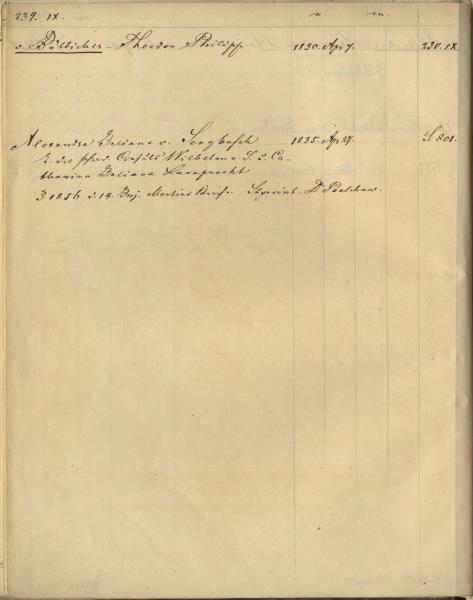 234. IX. n. m.
v. Bötticher - Theodor Philipp. 1830. Apr 7. 230. IX.
Alexandra Juliane v. Sengbusch 1835. Apr 27. S. 801.
T. des schwed. Consuls Wilhelm v. S. u. Ca-
tharina Juliana Lamprecht
1856 d. 14 Martins Kirche Dr Poelchau.